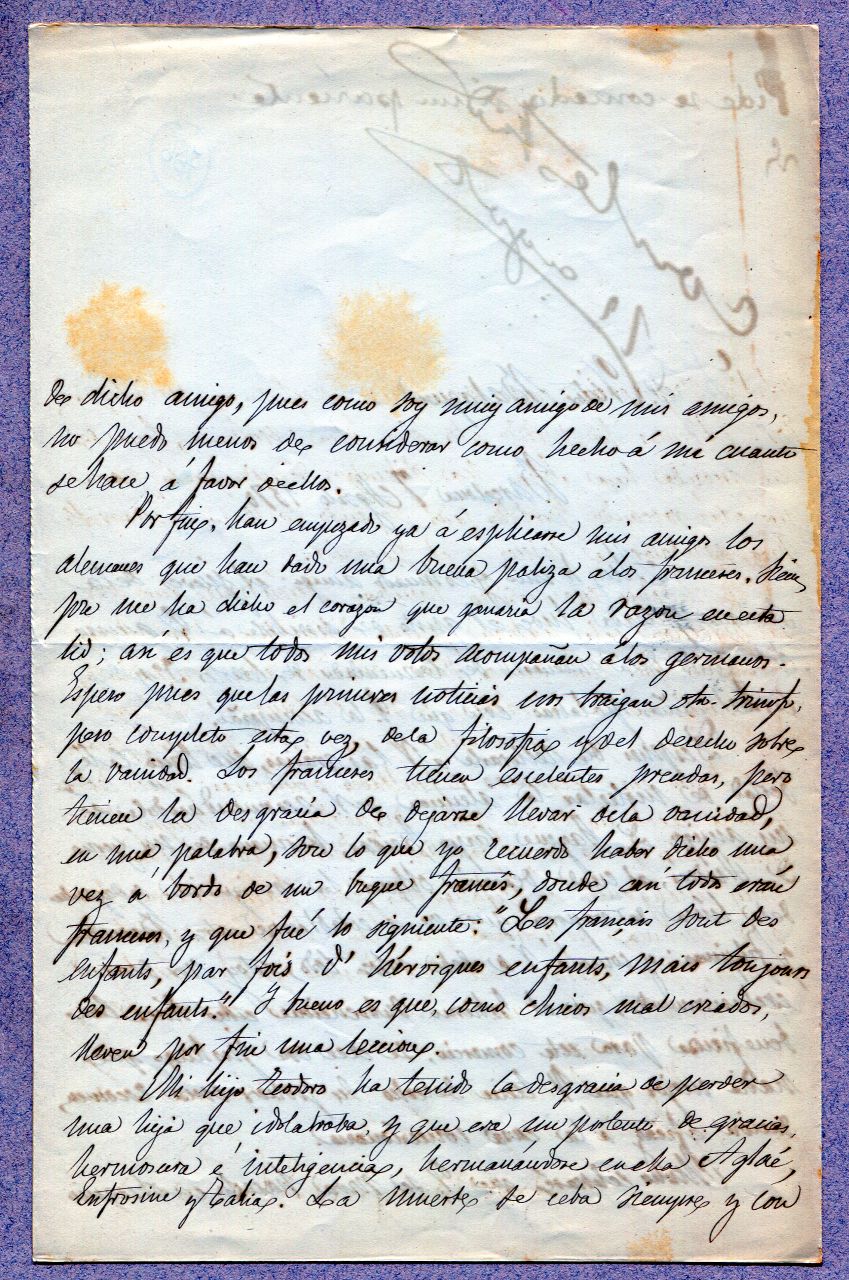 de dicho amigo, pues como soy muy amigo de mis amigos,
no puedo menos de considerar como hecho á mí cuanto
se hace á favor de ellos.
Por fin, han empezado ya á esplicarse mis amigos los
alemanes que han dado una buena paliza á los franceses. Siem
pre me ha dicho el corazon que ganaria la razon en esta
lid; así es que todos mis votos acompañan á los germanos.
Espero pues que las primeras noticias nos traigan otro triunfo,
pero completo esta vez, de la filosofia y del derecho sobre
la vanidad. Los franceses tienen escelentes prendas, pero
tienen la desgracia de dejarse llevar de la vanidad,
en una palabra, son lo que yo recuerdo haber dicho una
vez á bordo de un buque francés, donde casi todos eran
franceses, y que fué lo siguiente: "Les français sont des
enfants, par fois d' héroiques enfants, mais toujours
des enfants." Y bueno es que, como chicos mal criados,
lleven por fin una leccion.
Mi hijo Teodoro ha tenido la desgracia de perder
una hija que idolatraba, y que era un portento de gracias,
hermosura é inteligencia, hermanándose en ella Aglaé,
Eufrosine y Talia. La muerte se ceba siempre y con